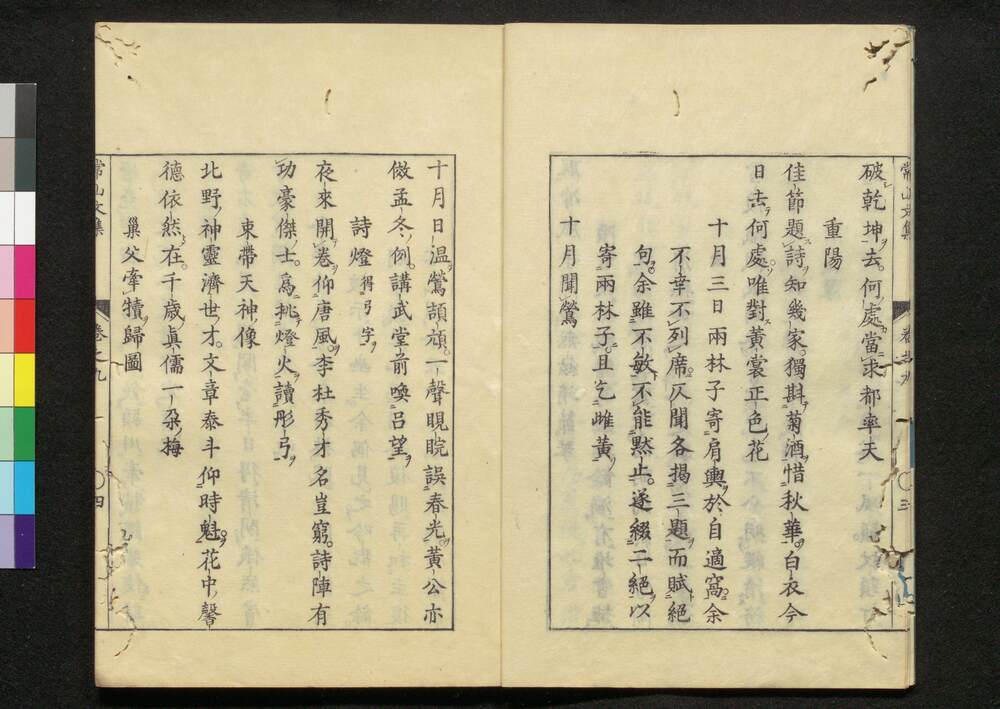 破乾坤去何處當求都率天
重陽
佳節題詩知幾家獨斟菊酒惜秋華白衣今
日去何處唯對黃裳正色花
十月三日兩林子寄肩輿於自適窩余
不幸不列席仄聞各揭三題而賦絕
句余雖不敏不能默止遂綴二絕以
寄兩林子且乞雌黃
十月聞鶯
常山文集
三
十月日溫鶯頡頏一聲睍睆誤春光黃公亦
倣孟冬例講武堂前喚呂望
詩燈
夜來開卷仰唐風李杜秀才名豈窮詩陣有
功豪傑士爲挑燈火讀彤弓
束帶天神像
北野神靈濟世才文章泰斗仰時魁花中馨
德依然在千歲眞儒一朶梅
巢父牽犢歸圖
常山文集
卷之九
四